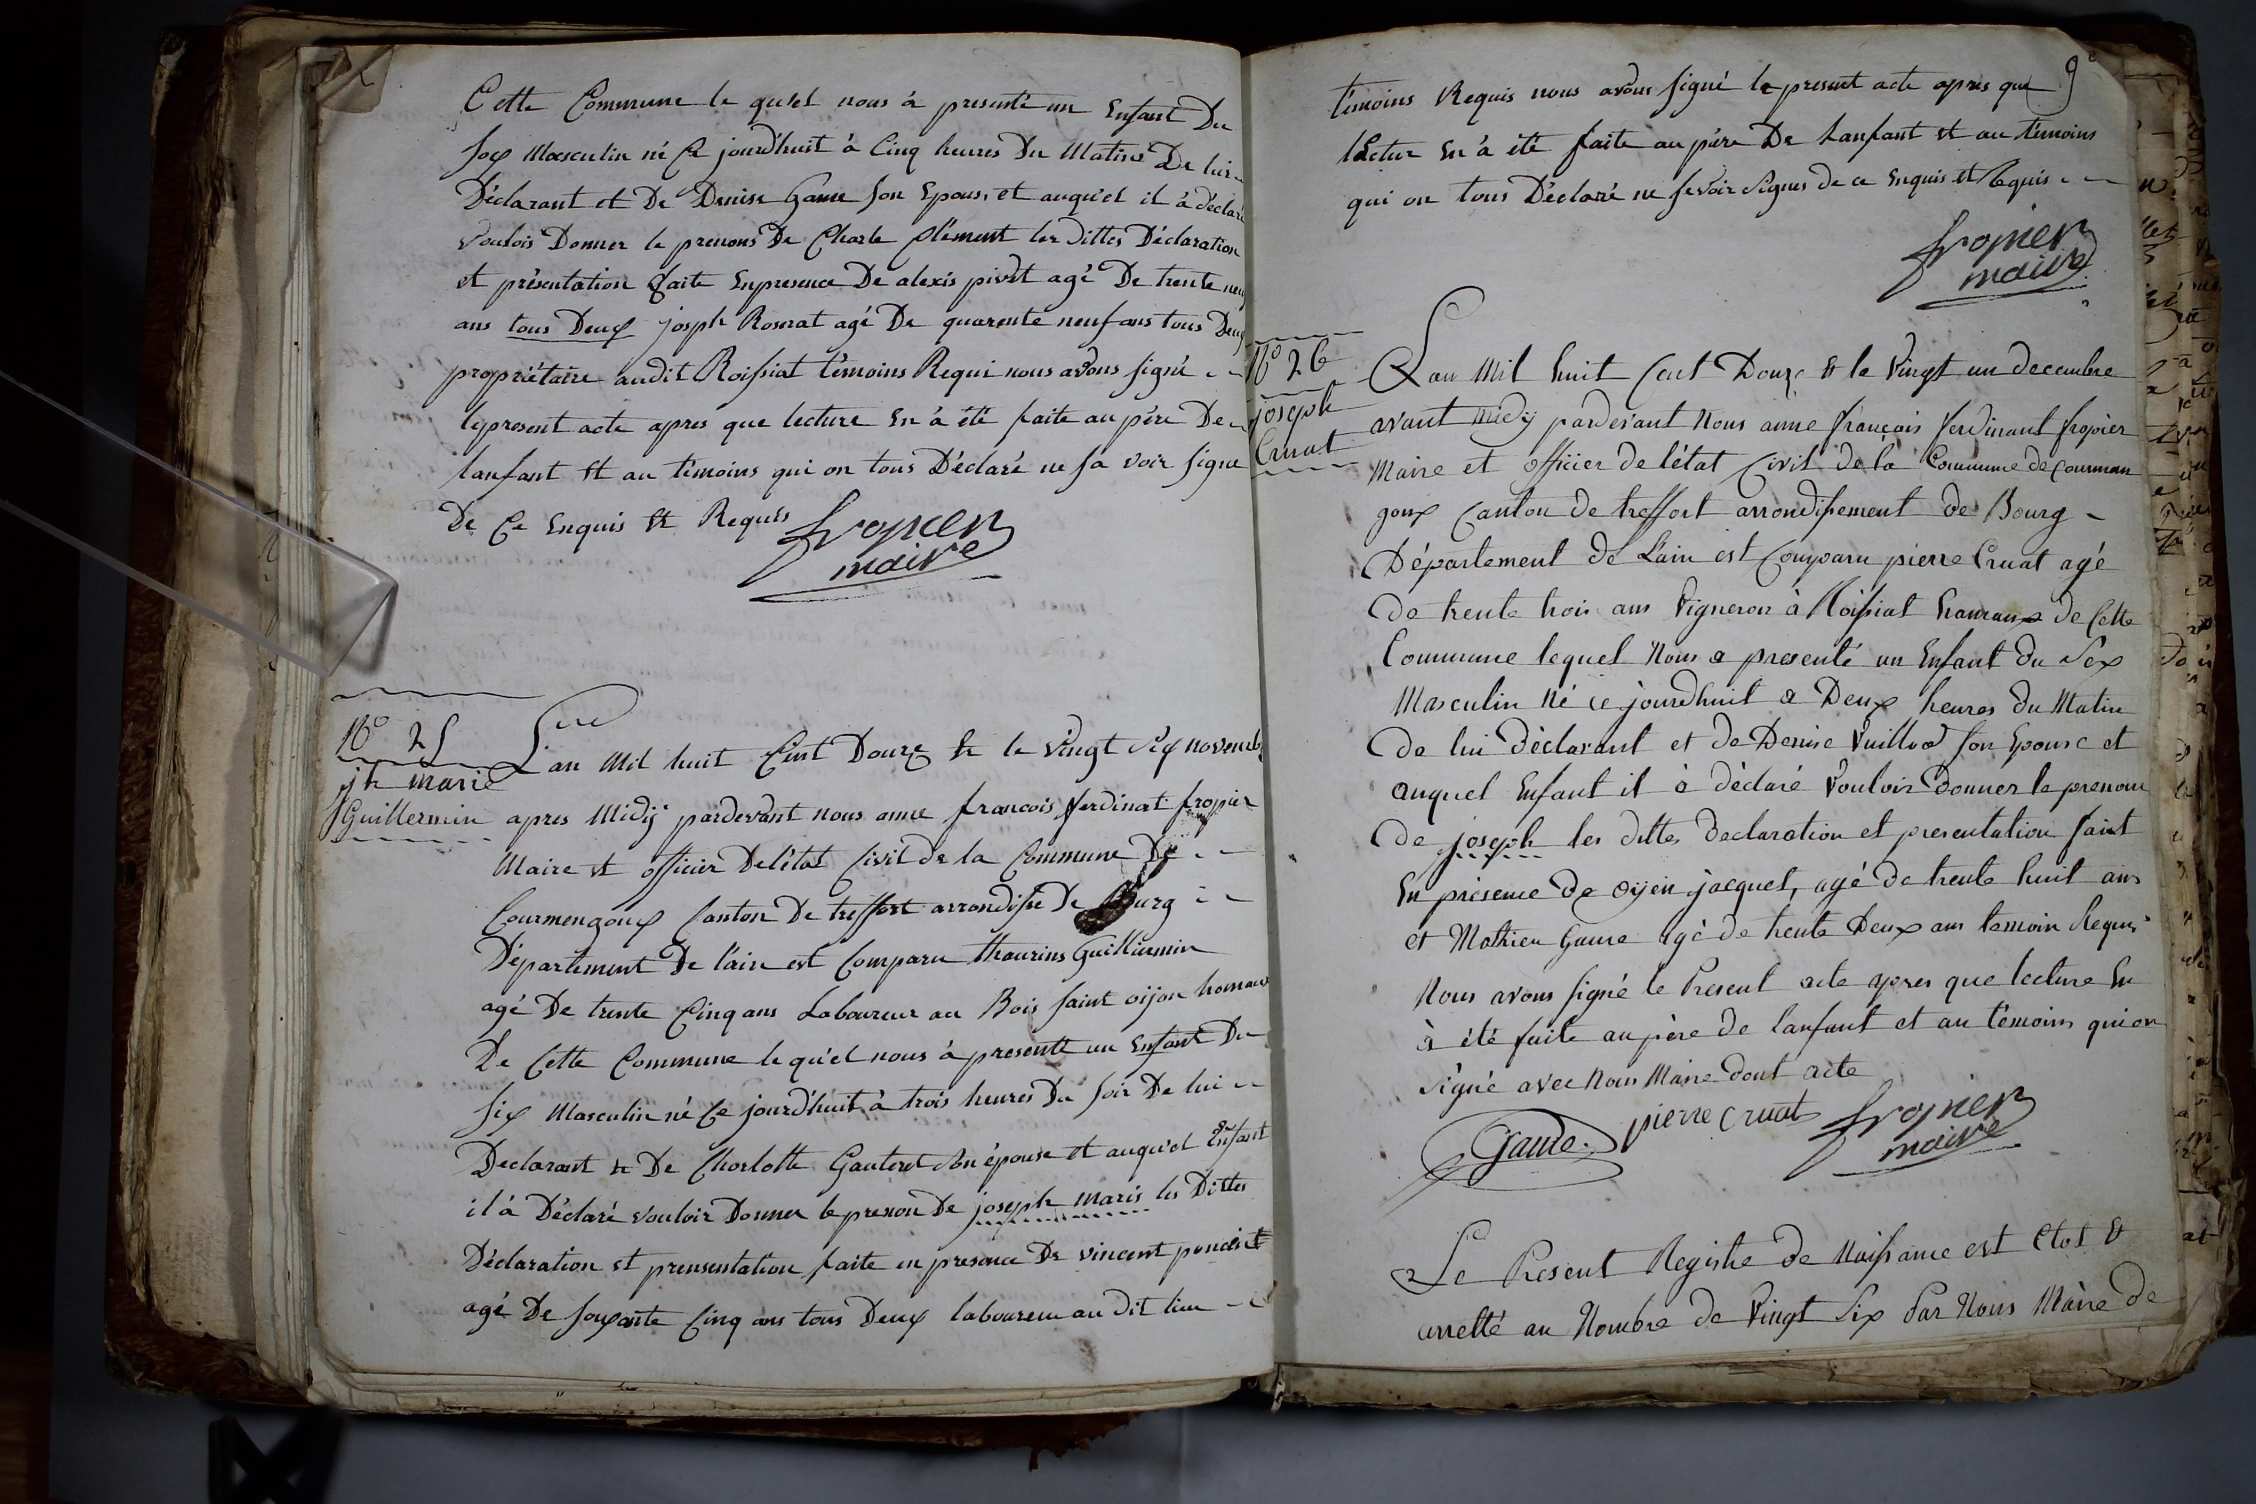 Cette Commune le quel nous à presenté un Enfant Du
sex Masculin né Ce jourd'huit à Cinq heures Du Matine De lui
Déclarant et De Denise Game son Epouse et auquel il à déclaré
vouloir Donner le prenons De Charle Clément les dittes Déclaration
et présentation faite Enpresence De alexis pivet agé De trente neuf
ans tous Deux joseph Roserat agé De quarente neuf ans tous Deux
propriétaire audit Roissiat témoins Requi nous avons signé
le present acte apres que lecture En à été faite au pére De
lanfant et au témoins qui on tous Déclaré ne sa voir signe
De Ce Enquis et Requis
fropier
maire
N° 25
jh marie
Guillermin
Lan Mil huit Cent Douze et le vingt six novemb
apres Midy pardevant nous anne francois ferdinat fropier
Maire et officier De létat Civil de la Commune De
Courmengoux Canton De treffort arrondisse De Bourg
Département De l'ain est Comparu thaurins Guilliermin
agé De trente Cinq ans Laboureur au Bois saint oijon hamaux
De Cette Commune le quel nous à presenté un Enfant Du
six Masculin né Ce jourd'huit à trois heures Du soir De lui
Declarant et De Charlotte Gauteret son épouse et auquel Enfant
il à Déclaré vouloir Donner le prenon De joseph marie les Dittes
Déclaration et prensentation faite en presence De vincent poncint
agé De soixante Cinq ans tous Deux laboureur au dit lieu
9e
témoins Requis nous avons signé le present acte apres que
lectur En à été faite au pére De Lanfant et au témoins
qui on tous Déclaré ne sevoir signer de ce Enquis et Requis
fropier
maire
N° 26
joseph
Cruat
Lan Mil huit Cent Douze et le Vingt un decembre
avant midy pardevant Nous anne françois ferdinant fropier
Maire et officier de létat Civil de la Commune de Courman
goux Canton de treffort arrondissement de Bourg
Département de Lain est Comparu pierre Cruat agé
de trente trois ans Vigneron à Roissiat hamaux de Cette
Commune lequel Nous a presenté un Enfant du Sex
Masculin Né ce jourdhuit a Deux heures du Matin
de lui déclarant et de Denise Vuillod son Epouse et
auquel Enfant il à déclaré Vouloir donner le prenom
de joseph les dittes declaration et presentation faint
En présence de oyen jacquet, agé de trente huit ans
et Mathieu Game agé de trente Deux ans temoin Requis
Nous avons signé le Present acte apres que lecture En
à été faite au père de lanfant et au témoins qui on
signé avec Nous Maire dont acte
Game pierre cruat fropier
maire
Le Present Registre de Naissance est Clot &
arretté au Nombre de Vingt Six Par Nous Maire de